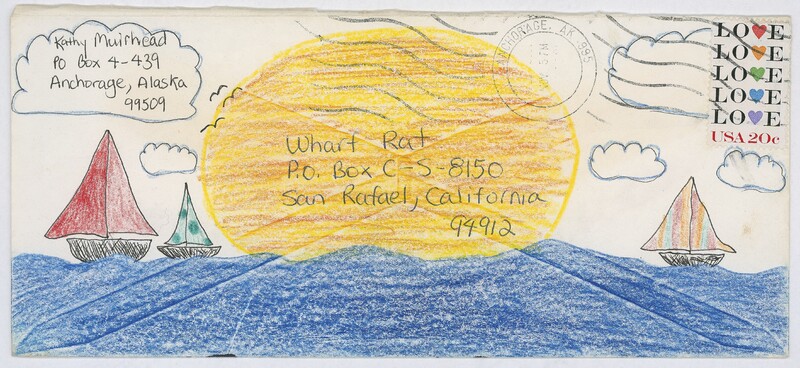 Kathy Muirhead
PO Box 4-439
Anchorage, Alaska
99509
ANCHORAGE, AK 995
LOVE
LOVE
LOVE
LOVE
LOVE
USA 20c
Wharf Rat
P.O. Box C-S-8150
San Rafael, California
94912